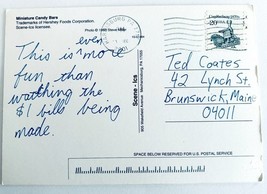 Miniature Candy Bars
Trademarks of Hershey Foods Corporation.
Scene-Ics licensee.
Photo © 1992 Steve
even
This is more
fun than
watching the
$1 bills being
made.
Scene - Ics
Mechanicsburg, PA
Ted Coates
42 Lynch St.
Brunswick, Maine
04011
SPACE BELOW RESERVED FOR U.S. POSTAL SERVICE